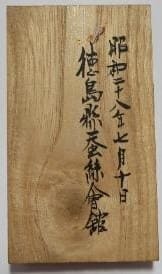 昭和二八年七月十日
徳島県蚕絲會館